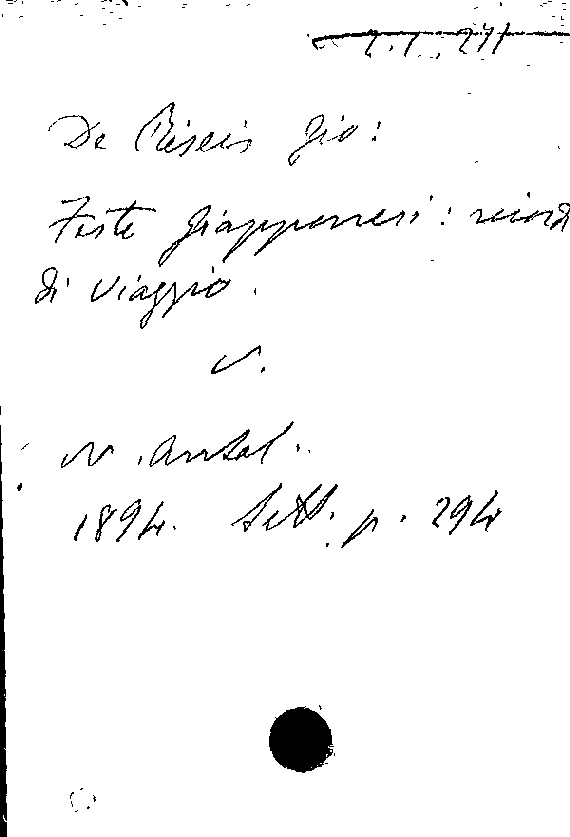 De Riseis Gio:
Feste giapponesi: ricordi
di viaggio.
v.
N. Antol.
1894. Sett. p. 294